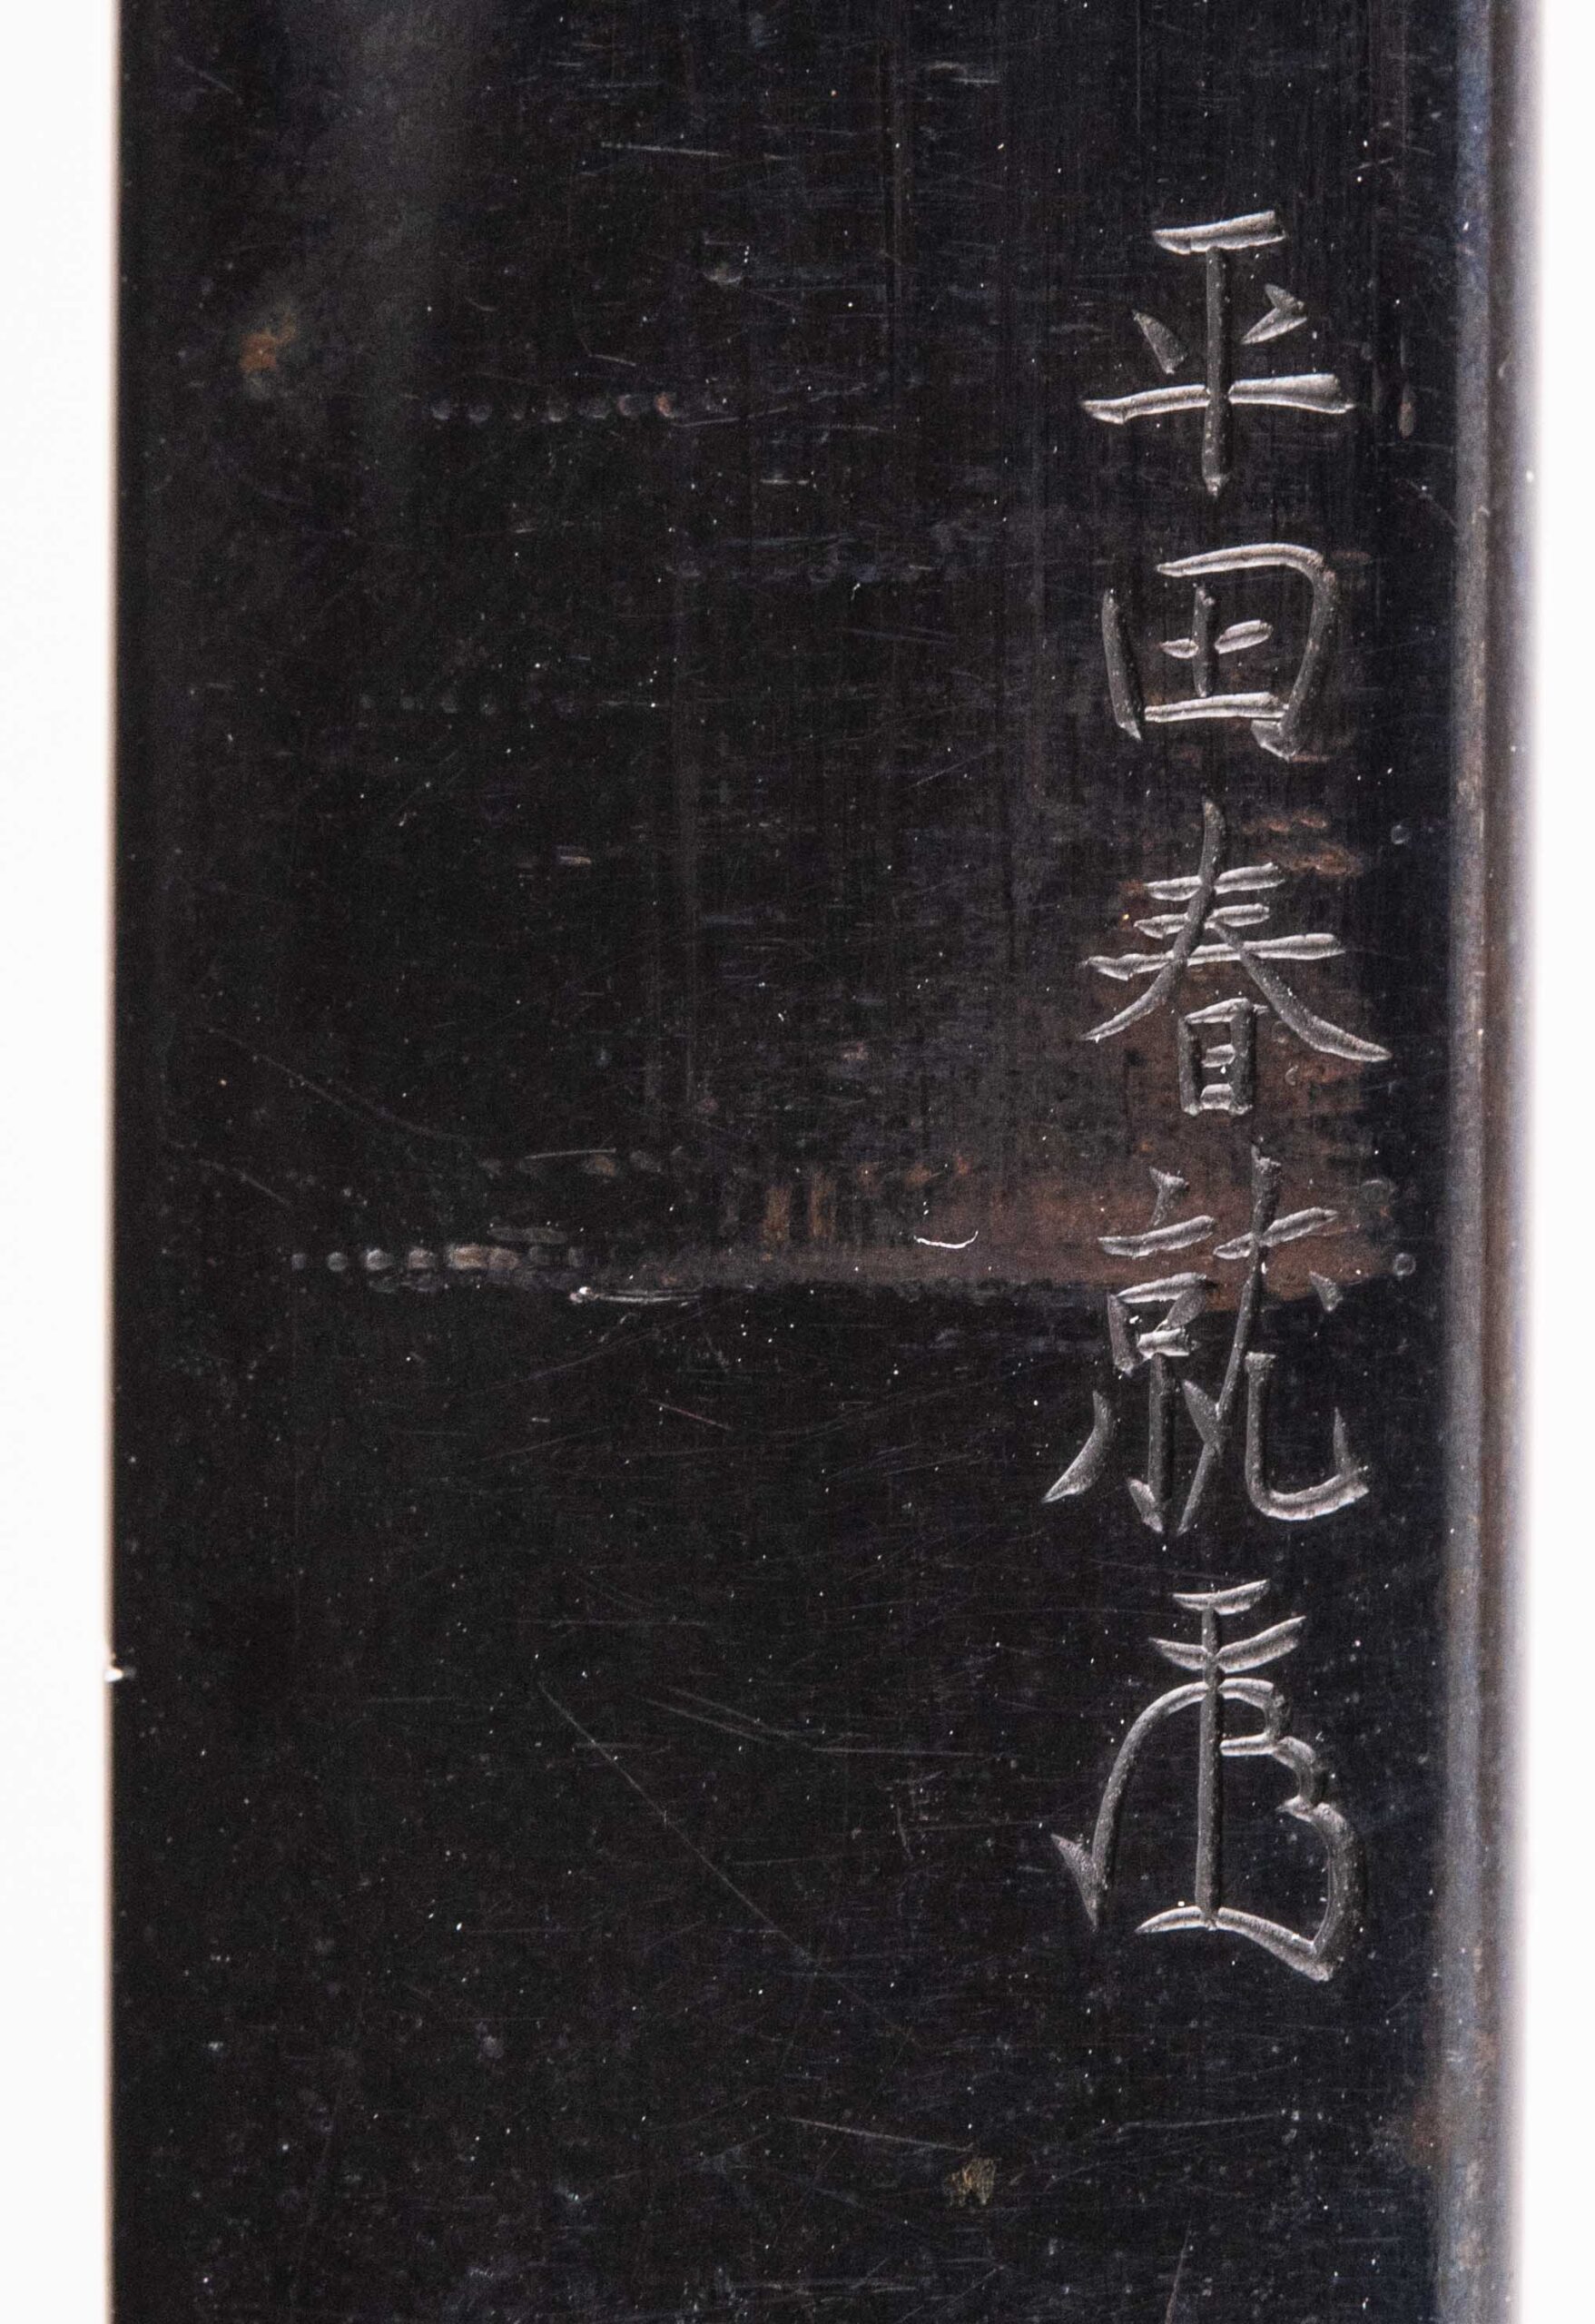 平田春就